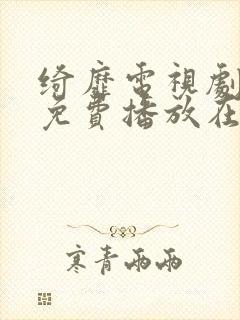 綺靡電視劇
免費播放在
寒青雨雨